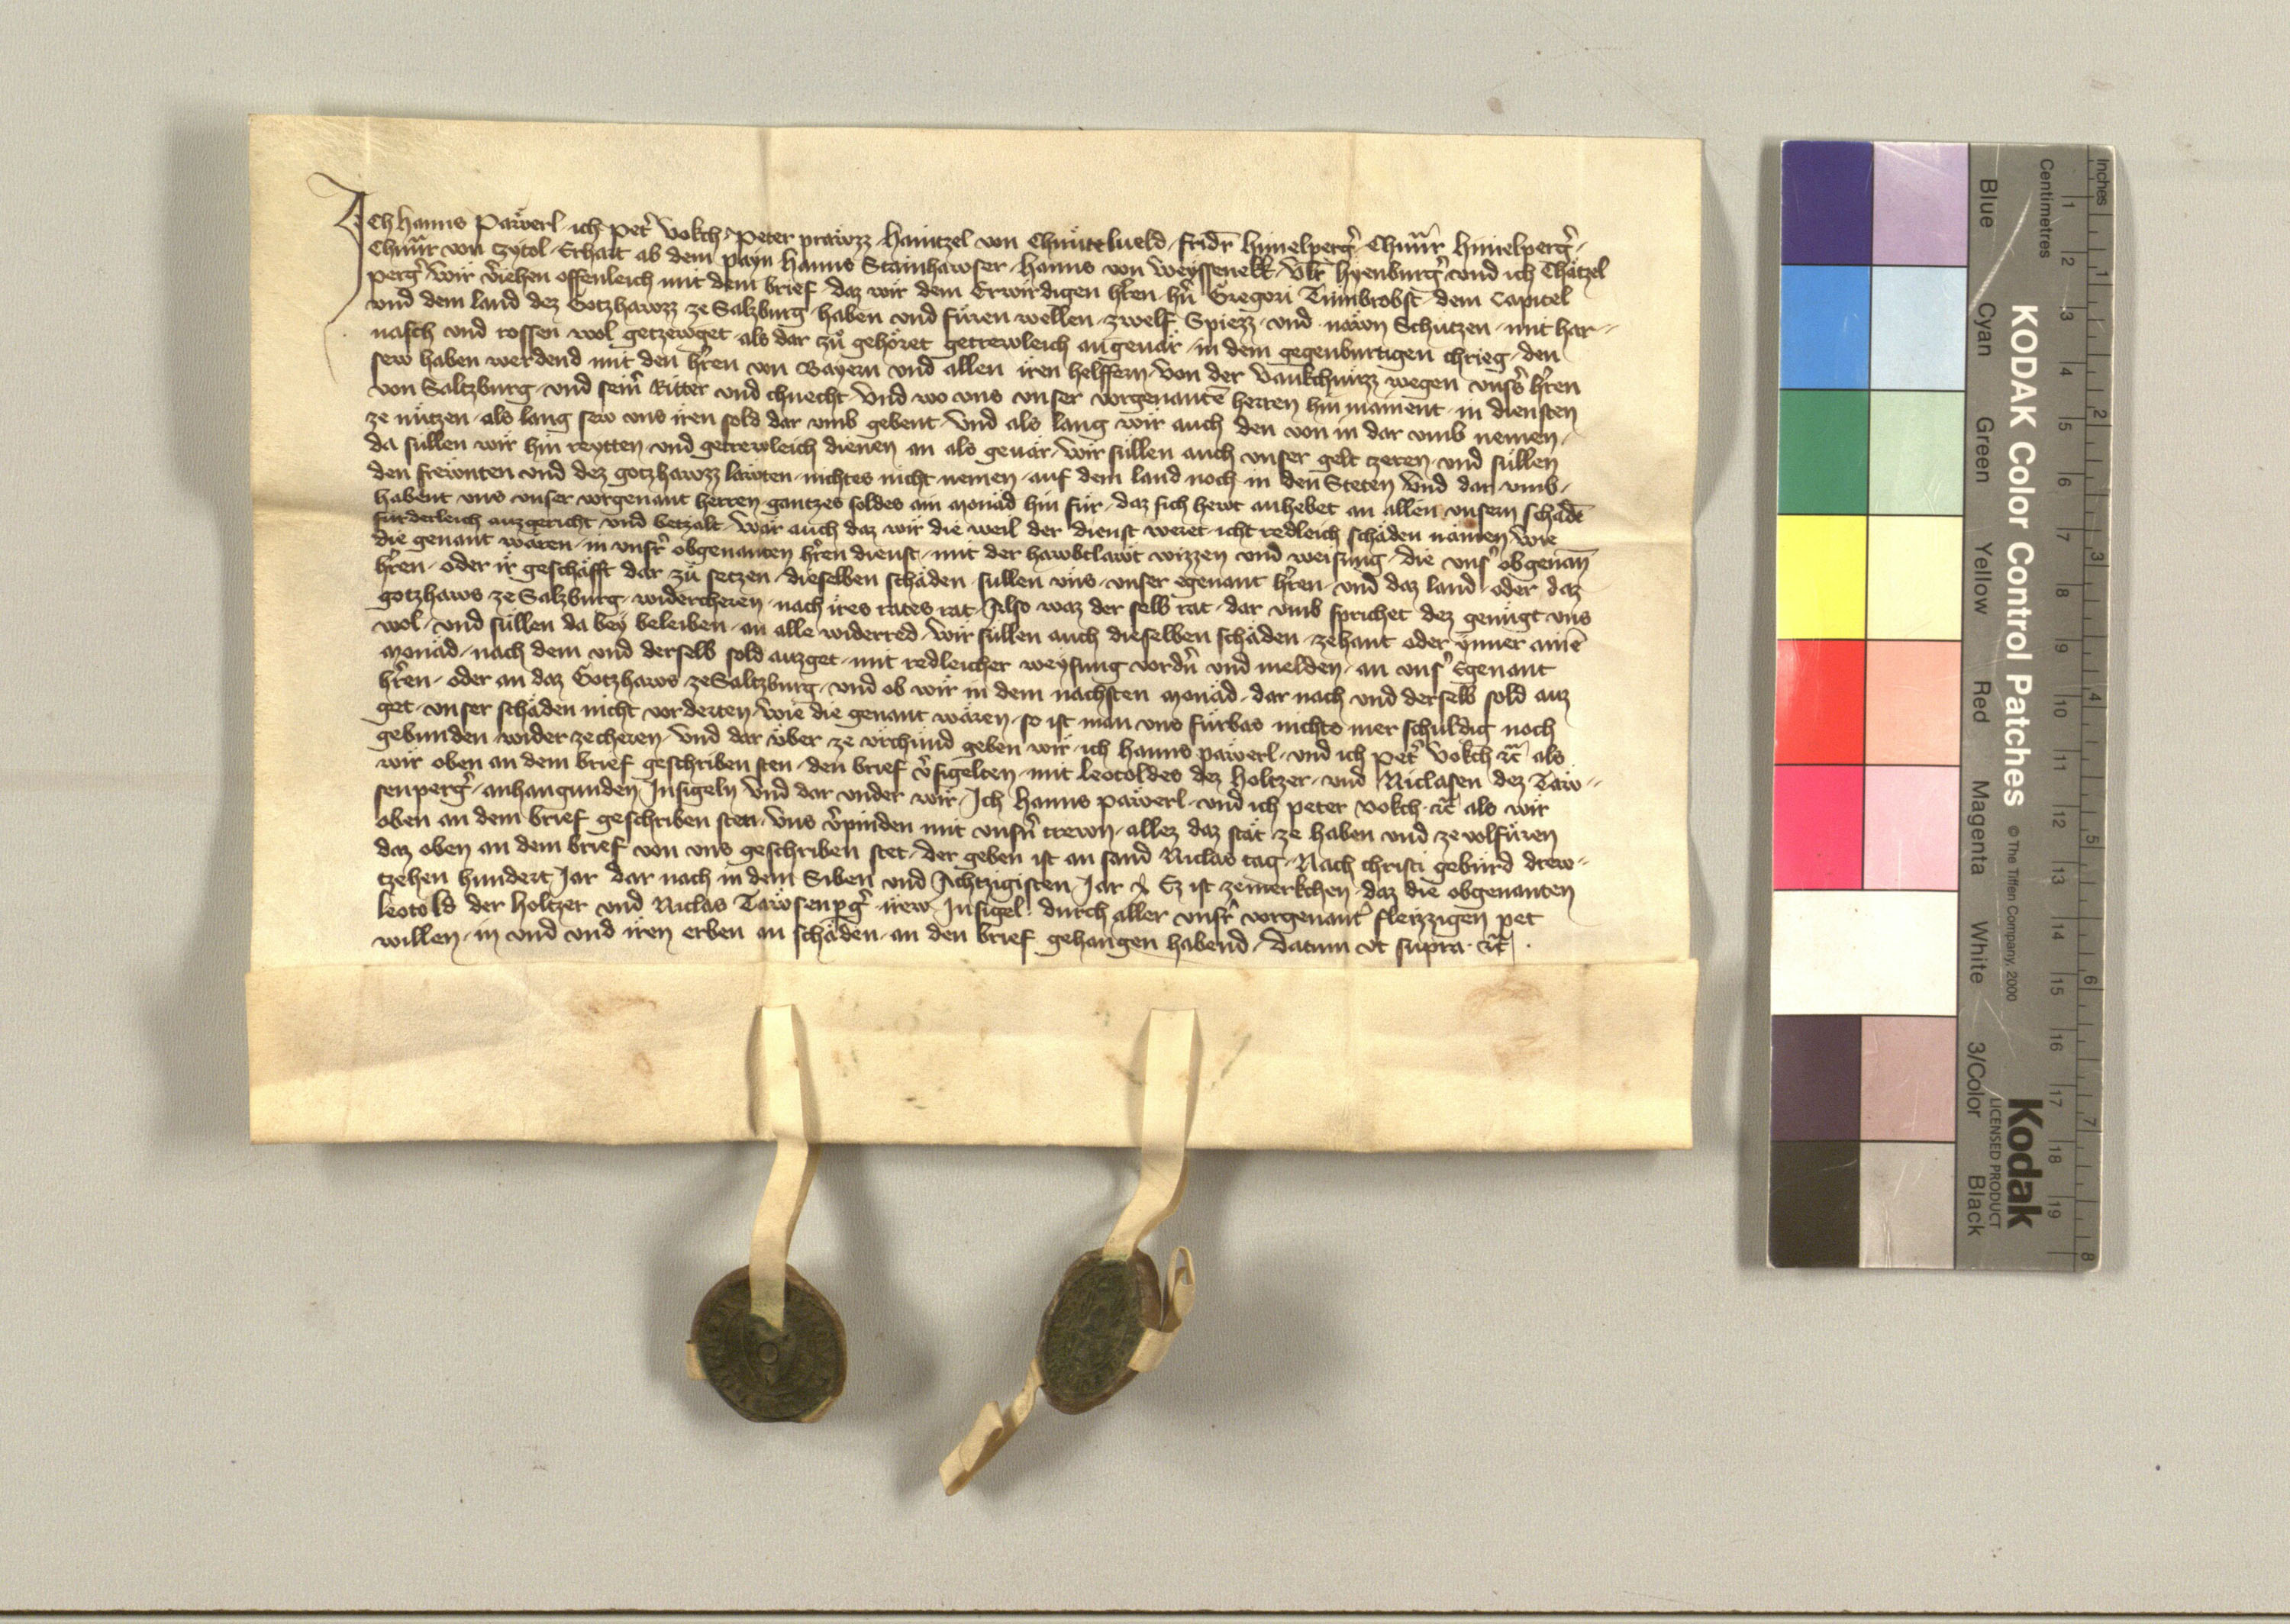 Ich Hanns Paẅerl · ich Pet̾ Vokch · Peter prawzz · Haintzel von Chnüttelueld · fridr̄ himelperg̾ · Chunr̄
Chunr̄ von Czytol · Erhart ab dem payn Hanns Stainhawser · Hanns von Weyssenekk · Vlr̄ hyenburg̾ und ich Chätzel
perg̾ · Wir v̾iehen offenleich mit dem brief · daz wir dem Erwirdigen hr̾en · hn̄ Gregori Tumbrobst · dem Capitel
vnd dem land dez Gotzhawzz ze Salzburg · haben vnd füren wellen · zwelf Spiezz · vnd näwn Schützen · mit har-
nasch vnd rossen wol getzewget · als dar zů gehöret getrewleich angenär · in dem gegenburtigen chrieg · den
sew haben werdend mit den hr̾en von Bayern vnd allen iren helffern · von der Vankchnüzz wegen vnsers hr̾en
von Saltzburg · vnd seinr̄ Ritter vnd chnecht · Vnd wo vns vnser vorgenantē herren hin manient · in diensten
ze nützen · als lang sew vns iren sold dar vmb gebent · Vnd als lang wir auch den von in dar vmb nemen ·
da süllen wir hin reytten · vnd getrewleich dienen an als geuär · Wir süllen auch vnser gelt czeren · vnd süllen
den frewnten vnd dez gotzhawzz läwten · nichtes nicht nemen · auf dem land noch in den Steten Vnd dar vmb ·
habent vns vnser vorgenant herren · gantzes soldes ain Monäd hin für · daz sich hewt anhebet an allen vnsern schädē
fürderleich auzgericht · vnd betzalt · Wär auch daz wir die weil der dienst weret · icht redleich schäden nämen · Wie
die genant wären · in vnsr̾ obgenanten hr̾en dienst · mit der hawbtlawt wizzen vnd weisung · die vns̾ obgenan̄
hr̾en · oder ir geschäfft dar zů setzen · dieselben schäden · sullen vns · vnser egenant hr̾en · vnd daz land · oder daz
gotzhaws · ze Salzburg · widercheren · nach ires rates rat · Also waz der selb rat · dar vmb sprichet dez genügt vns
wol · vnd süllen da bey beleiben · an alle widerred · Wir süllen auch dieselben schäden · zehant oder ynner ainē
Monäd · nach dem vnd derselb sold auzget · mit redleicher weysung vordn̄ vnd melden · an vns̾ Egenant
hr̾en · oder an daz Gotzhaws · ze Saltzburg · vnd ob wir in dem nachsten Monäd · dar nach vnd derselb sold auz
get · vnser schäden nicht vorderten · Wie die genant wären · so ist man vns fürbas nichts mer schuldig noch
gebunden wider zecheren · Vnd dar über ze vrchünd geben wir · ich Hanns paẅerl · vnd ich Pet̾ Vokch ⁊c̄ als
wir oben an dem brief geschriben sten · den brief v̾sigelten · mit Leotoldes dez Holtzer · vnd Niclasen dez Taw-
senperg̾ · anhangunden Insigeln Vnd dar vnder wir · Ich Hanns paẅerl · vnd ich peter vokch · ⁊c̄ als wir
oben an dem brief geschriben sten · Vns v̾pinden mit vnsn̄ trewn · allez daz stät ze haben vnd ze volfüren
daz oben an dem brief von vns geschriben stet · der geben ist an sand Niclas tag · Nach christi gebürd drew-
tzehen hundert Jar dar nach in dem Siben vnd Achtzigisten Jar Ez ist zemerkchen · daz die obgenanten
Leotold der Holtzer vnd Niclas Tawsenperg̾ · irew Insigel · durch aller vnsr̄ vorgenant̾ fleizzigen pet
willen · in vnd vnd iren erben an schäden · an den brief gehangen habend · Datum vt supra · ⁊c̄ ·
Inches
Centimetres
KODAK Color Control Patches © The Tiffen Company, 2000 Kodak
LICENSED PRODUCT
Blue Cyan Green Yellow Red Magenta White 3/Color Black
1 2 3 4 5 6 7 8 9 10 11 12 13 14 15 16 17 18 19
1 2 3 4 5 6 7 8